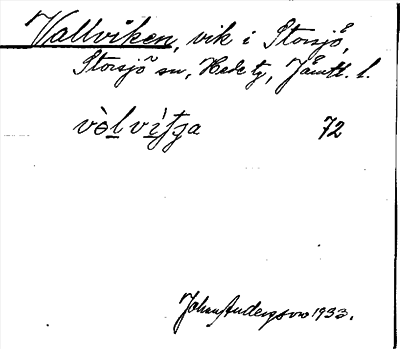 Vallviken, vik i Storsjö,
Storsjö sn, Hede tg, Jämtl. l.
72
Johan Andersson 1933.